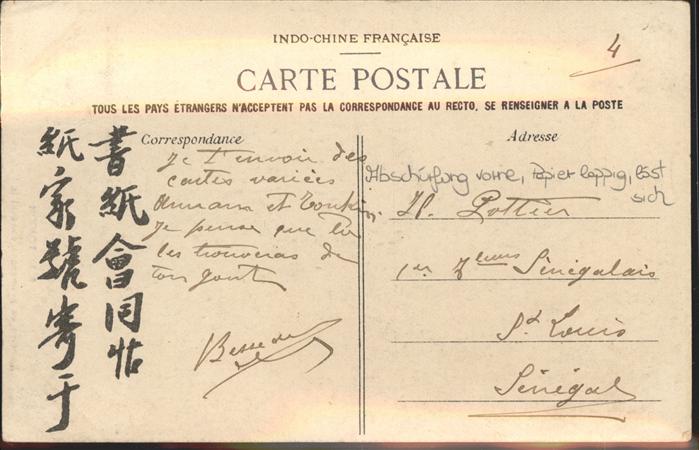 INDO-CHINE FRANÇAISE
4
CARTE POSTALE
TOUS LES PAYS ÉTRANGERS N'ACCEPTENT PAS LA CORRESPONDANCE AU RECTO, SE RENSEIGNER A LA POSTE
Correspondance
Je t'envoir des
cartes variées
Annam et Tonkin.
Je pense que tu
les trouveras de
ton gout
Adresse
Abschürfung vorne, Papier lappig, löst
sich
Pottier
1er Senégalais
St Louis
Sénégal
書紙會同帖
紙家號寄于